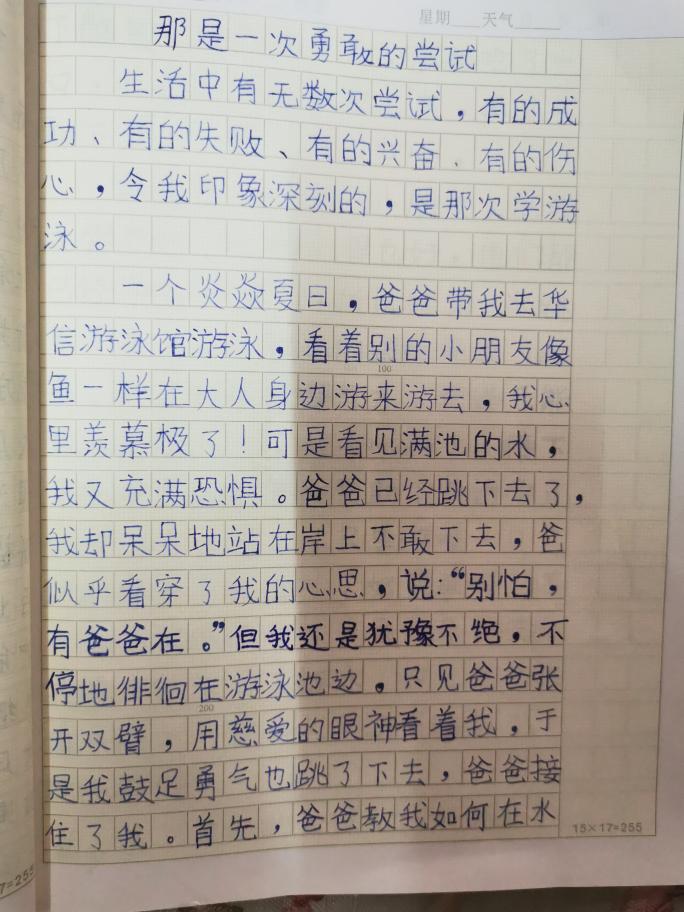 星期 天气
那是一次勇敢的尝试
生活中有无数次尝试，有的成
功、有的失败、有的兴奋、有的伤
心，令我印象深刻的，是那次学游
泳。
一个炎焱夏日，爸爸带我去华
信游泳馆游泳，看着别的小朋友像
100
鱼一样在大人身边游来游去，我心
里羡慕极了！可是看见满池的水，
我又充满恐惧。爸爸已经跳下去了，
我却呆呆地站在岸上不敢下去，爸
似乎看穿了我的心思，说：“别怕，
有爸爸在。”但我还是犹豫不绝，不
停地徘徊在游泳池边。只见爸爸张
200
开双臂，用慈爱的眼神看着我，于
是我鼓足勇气也跳了下去，爸爸接
住了我。首先，爸爸教我如何在水
15×17=255
7=255